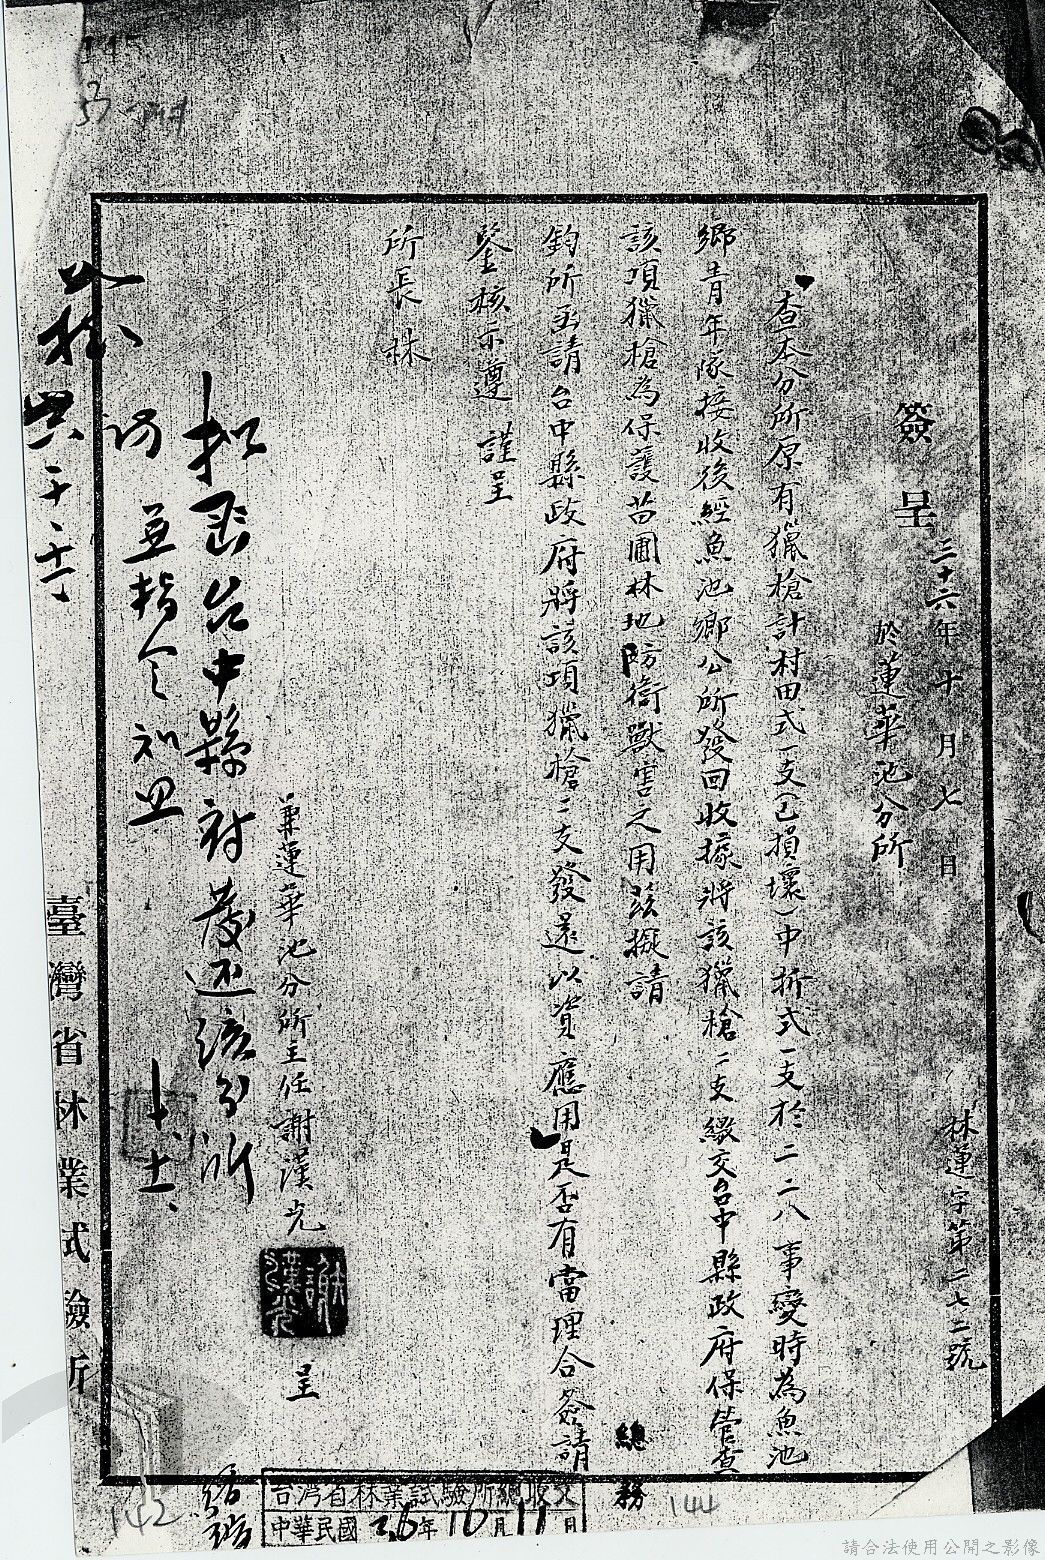 林蓮字第二七二號
簽呈 三十六年十月七日
於蓮華池分所
查本分所原有獵槍計村田式一支(已損壞)中折式一支於二二八事變時為魚池
鄉青年隊接收後經魚池鄉公所發回收據將該獵槍二支繳交台中縣政府保管查
該項獵槍為保護苗圃林地防衛獸害之用茲擬請
鈞所函請台中縣政府將該項獵槍二支發還以資應用是否有當理合簽請
鑒核示遵 謹呈
所長林
兼蓮華池分所主任謝漢光 呈
謝漢光
擬函台中縣府發還該分所
並指令知照
十、十一、
總務
臺灣省林業試驗所
台灣省林業試驗所總收文
中華民國36年10月11日
142
144
請合法使用公開之影像